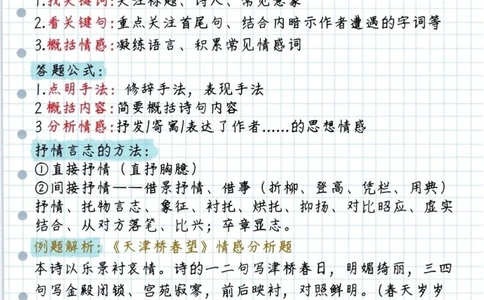 1.找关键词:关注标题、诗人、常见意象
2.看关键句:重点关注首尾句、结合内暗示作者遭遇的字词等
3.概括情感:凝练语言、积累常见情感词
答题公式:
1.点明手法: 修辞手法，表现手法
2概括内容:简要概括诗句内容
3 分析情感:抒发/寄寓/表达了作者……的思想情感
抒情言志的方法:
①直接抒情（直抒胸臆）
②间接抒情——借景抒情、借事（折柳、登高、凭栏、用典）
抒情、托物言志、象征、衬托、烘托、抑扬、对比昭应、虚实
结合、从对方落笔、比兴；卒章显志。
例题解析:《天津桥春望》情感分析题
本诗以乐景衬哀情。诗的一二句写津桥春日，明媚绮丽，三四
句写金殿闭锁、宫苑寂寥，前后映衬，对照鲜明。(春天岁岁